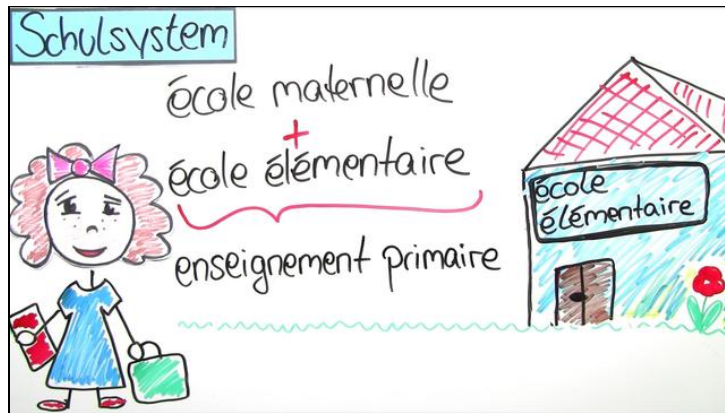 Schulsystem
école maternelle
+
école élémentaire
enseignement primaire
école
élémentaire